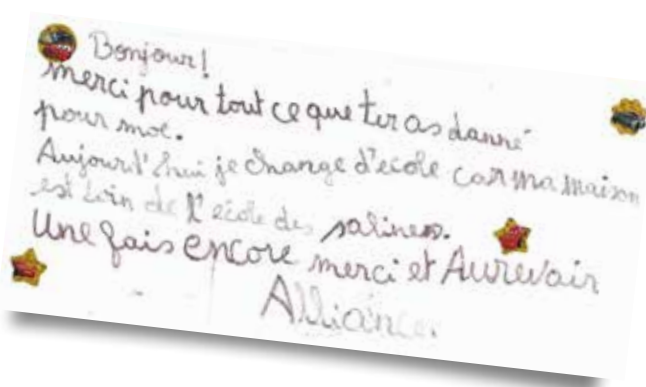 Bonjour!
merci pour tout ce que tu as danné
pour moi.
Aujourd'hui je change d'ecole car ma maison
est loin de l'ecole des salines.
Une fais encore merci et Aurevair
Alliance.